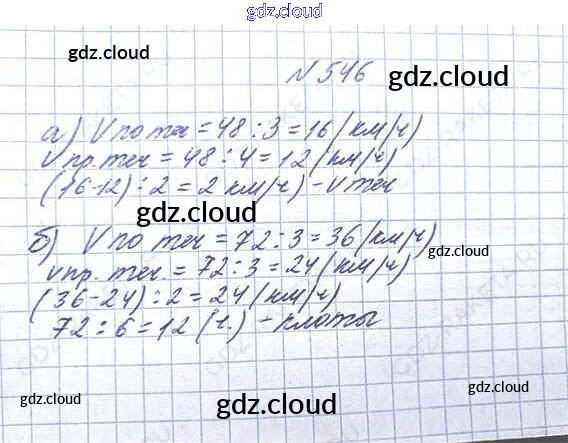 gdz.cloud
gdz.cloud
N 546 gdz.cloud
а) V по теч = 48 : 3 = 16 (км/ч)
V пр. теч = 48 : 4 = 12 (км/ч)
(16-12) : 2 = 2 км/ч) - V теч
gdz.cloud
б) V по теч = 72 : 3 = 36 (км/ч)
gdz.cloud
V пр. теч. = 72 : 3 = 24 (км/ч)
(36-24) : 2 = 24 (км/ч)
72 : 6 = 12 (ч.) - плоты
gdz.cloud
gdz.cloud
gdz.cloud